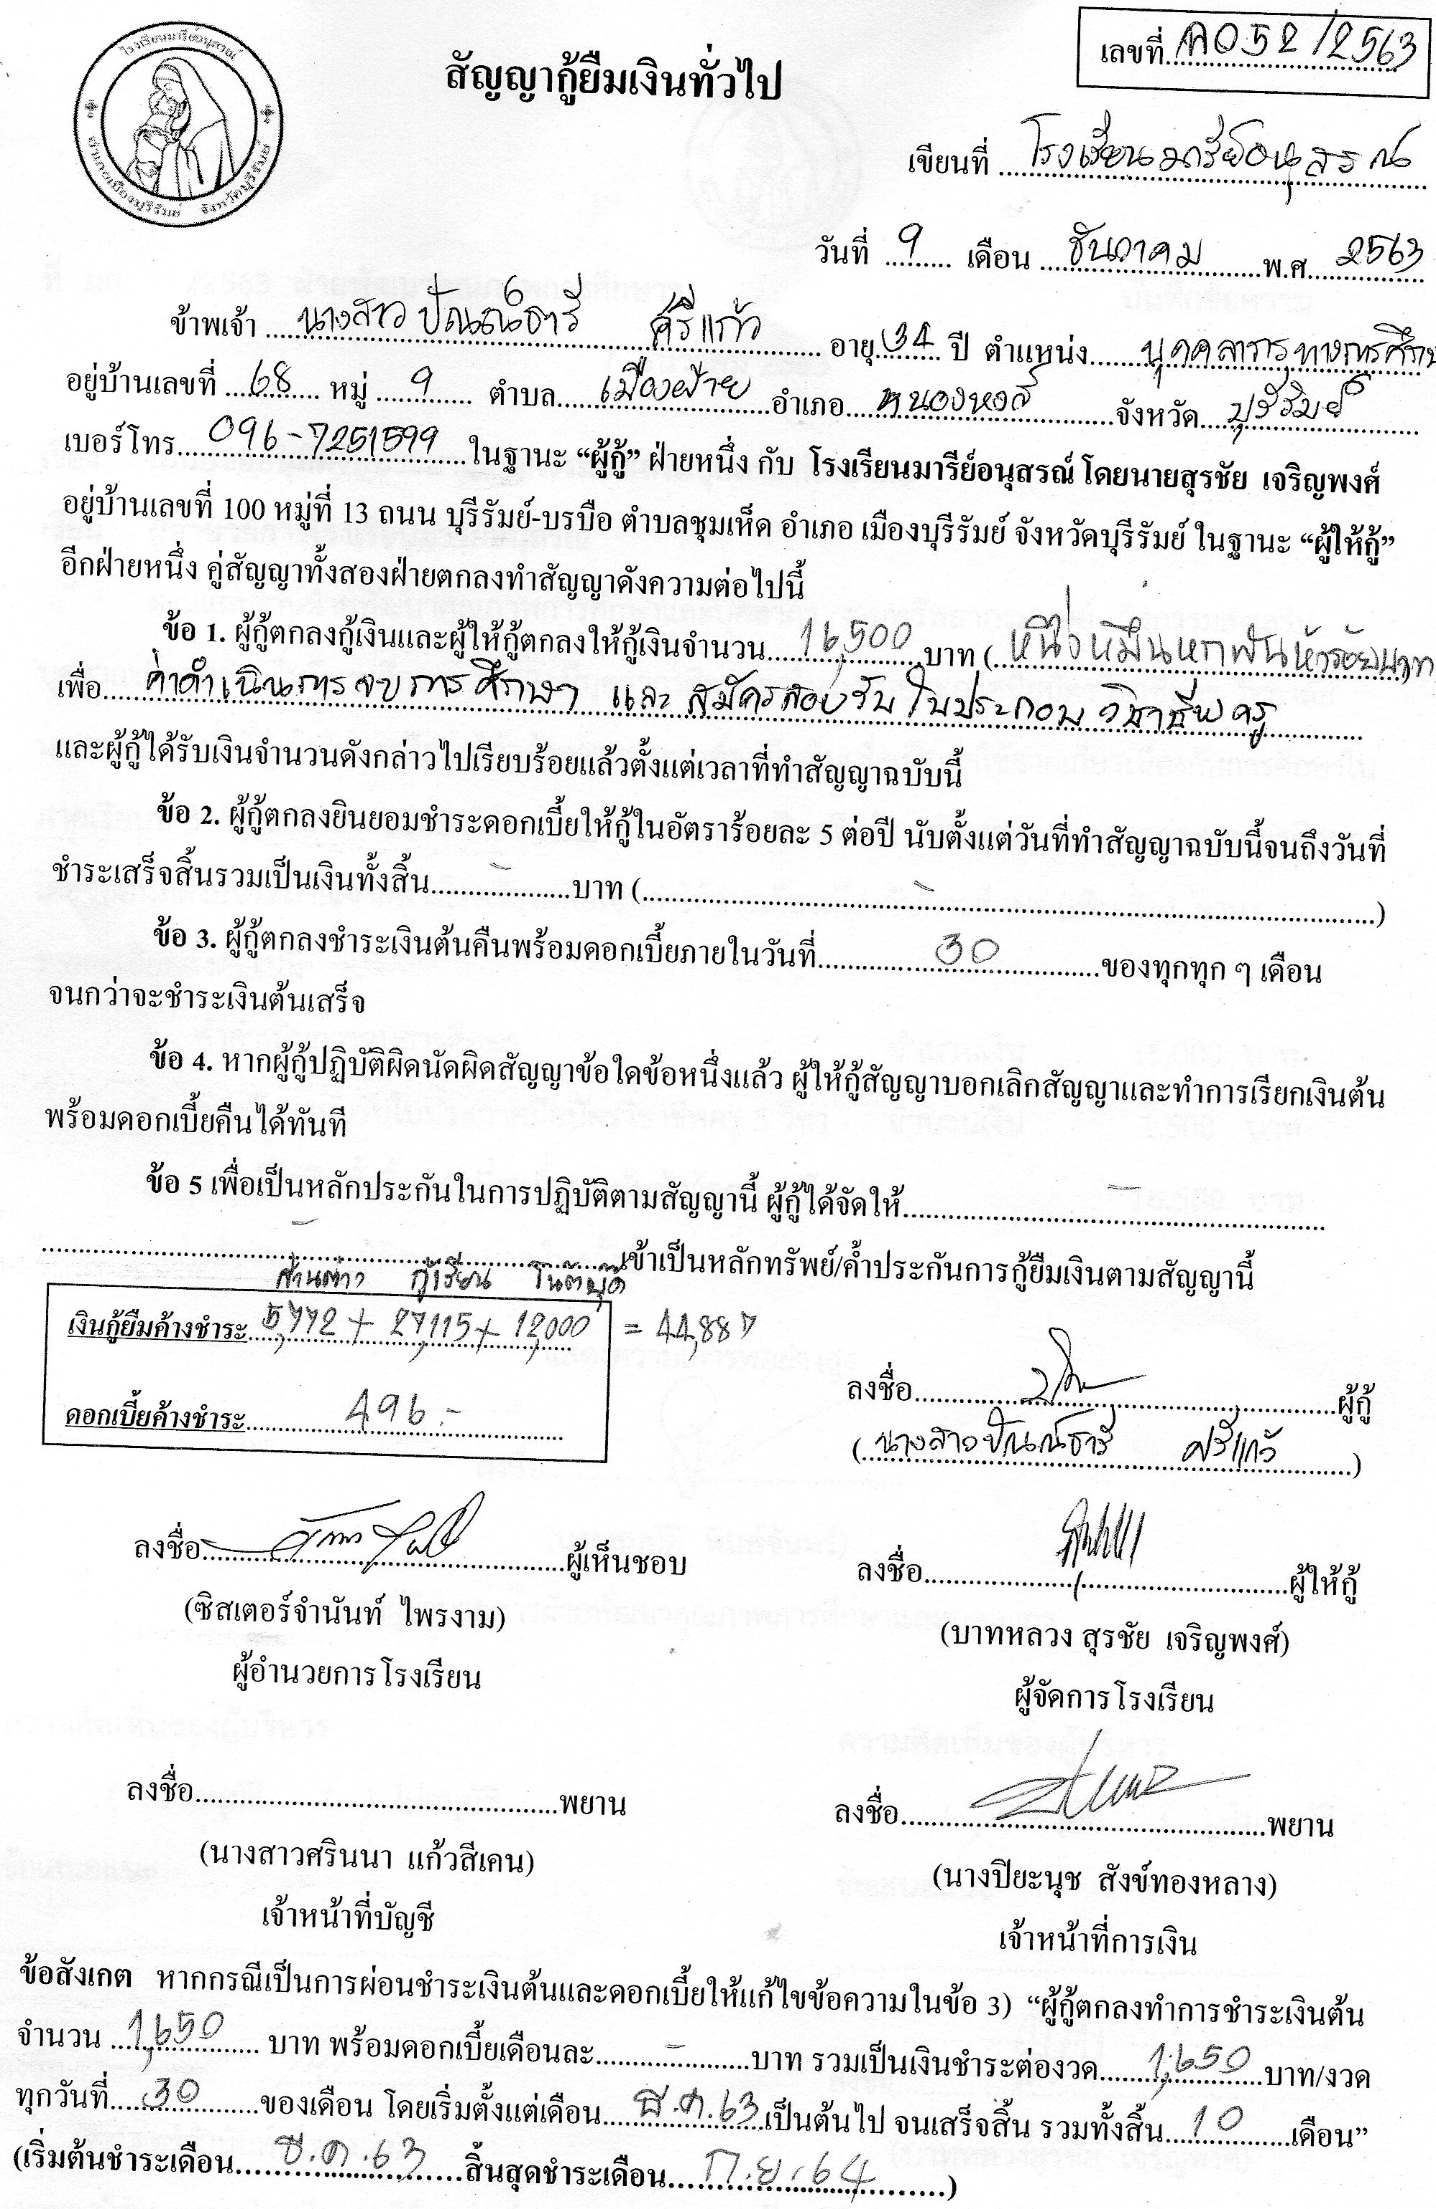 โรงเรียนมารีย์อนุสรณ์
อำเภอเมืองบุรีรัมย์ จังหวัดบุรีรัมย์
สัญญากู้ยืมเงินทั่วไป
เลขที่ A052/2563
เขียนที่ โรงเรียนมารีย์อนุสรณ์
วันที่ 9 เดือน ธันวาคม พ.ศ. 2563
ข้าพเจ้า นางสาวปัณณ์ธารี ศรีแก้ว อายุ 34 ปี ตำแหน่ง บุคลากรทางการศึกษา
อยู่บ้านเลขที่ 68 หมู่ 9 ตำบล เมืองฝ้าย อำเภอ หนองหงส์ จังหวัด บุรีรัมย์
เบอร์โทร 096-7251599 ในฐานะ “ผู้กู้” ฝ่ายหนึ่ง กับ โรงเรียนมารีย์อนุสรณ์ โดยนายสุรชัย เจริญพงศ์
อยู่บ้านเลขที่ 100 หมู่ที่ 13 ถนน บุรีรัมย์-บรบือ ตำบลชุมเห็ด อำเภอ เมืองบุรีรัมย์ จังหวัดบุรีรัมย์ ในฐานะ “ผู้ให้กู้”
อีกฝ่ายหนึ่ง คู่สัญญาทั้งสองฝ่ายตกลงทำสัญญาดังความต่อไปนี้
ข้อ 1. ผู้กู้ตกลงกู้เงินและผู้ให้กู้ตกลงให้กู้เงินจำนวน 16,500 บาท (หนึ่งหมื่นหกพันห้าร้อยบาท
เพื่อ ค่าดำเนินการจบการศึกษา และ สมัครสอบรับใบประกอบวิชาชีพครู
และผู้กู้ได้รับเงินจำนวนดังกล่าวไปเรียบร้อยแล้วตั้งแต่เวลาที่ทำสัญญาฉบับนี้
ข้อ 2. ผู้กู้ตกลงยินยอมชำระดอกเบี้ยให้กู้ในอัตราร้อยละ 5 ต่อปี นับตั้งแต่วันที่ทำสัญญาฉบับนี้จนถึงวันที่
ชำระเสร็จสิ้นรวมเป็นเงินทั้งสิ้น - บาท ( - )
ข้อ 3. ผู้กู้ตกลงชำระเงินต้นคืนพร้อมดอกเบี้ยภายในวันที่ 30 ของทุกทุก ๆ เดือน
จนกว่าจะชำระเงินต้นเสร็จ
ข้อ 4. หากผู้กู้ปฏิบัติผิดนัดผิดสัญญาข้อใดข้อหนึ่งแล้ว ผู้ให้กู้สัญญาบอกเลิกสัญญาและทำการเรียกเงินต้น
พร้อมดอกเบี้ยคืนได้ทันที
ข้อ 5 เพื่อเป็นหลักประกันในการปฏิบัติตามสัญญานี้ ผู้กู้ได้จัดให้ -
- เข้าเป็นหลักทรัพย์/ค้ำประกันการกู้ยืมเงินตามสัญญานี้
กู้เรียน โน๊ตบุ๊ค
เงินกู้ยืมค้างชำระ 5,772 + 27,115 + 12,000 = 44,887
ดอกเบี้ยค้างชำระ 496.-
ลงชื่อ ผู้กู้
(นางสาวปัณณ์ธารี ศรีแก้ว)
ลงชื่อ ผู้เห็นชอบ
(ซิสเตอร์จำนันท์ ไพรงาม)
ผู้อำนวยการโรงเรียน
ลงชื่อ ผู้ให้กู้
(บาทหลวง สุรชัย เจริญพงศ์)
ผู้จัดการโรงเรียน
ลงชื่อ พยาน
(นางสาวศรินนา แก้วสีเคน)
เจ้าหน้าที่บัญชี
ลงชื่อ พยาน
(นางปิยะนุช สังข์ทองหลาง)
เจ้าหน้าที่การเงิน
ข้อสังเกต หากกรณีเป็นการผ่อนชำระเงินต้นและดอกเบี้ยให้แก้ไขข้อความในข้อ 3) “ผู้กู้ตกลงทำการชำระเงินต้น
จำนวน 1,650 บาท พร้อมดอกเบี้ยเดือนละ - บาท รวมเป็นเงินชำระต่องวด 1,650 บาท/งวด
ทุกวันที่ 30 ของเดือน โดยเริ่มตั้งแต่เดือน ธ.ค.63 เป็นต้นไป จนเสร็จสิ้น รวมทั้งสิ้น 10 เดือน”
(เริ่มต้นชำระเดือน ธ.ค.63 สิ้นสุดชำระเดือน ก.ย.64)